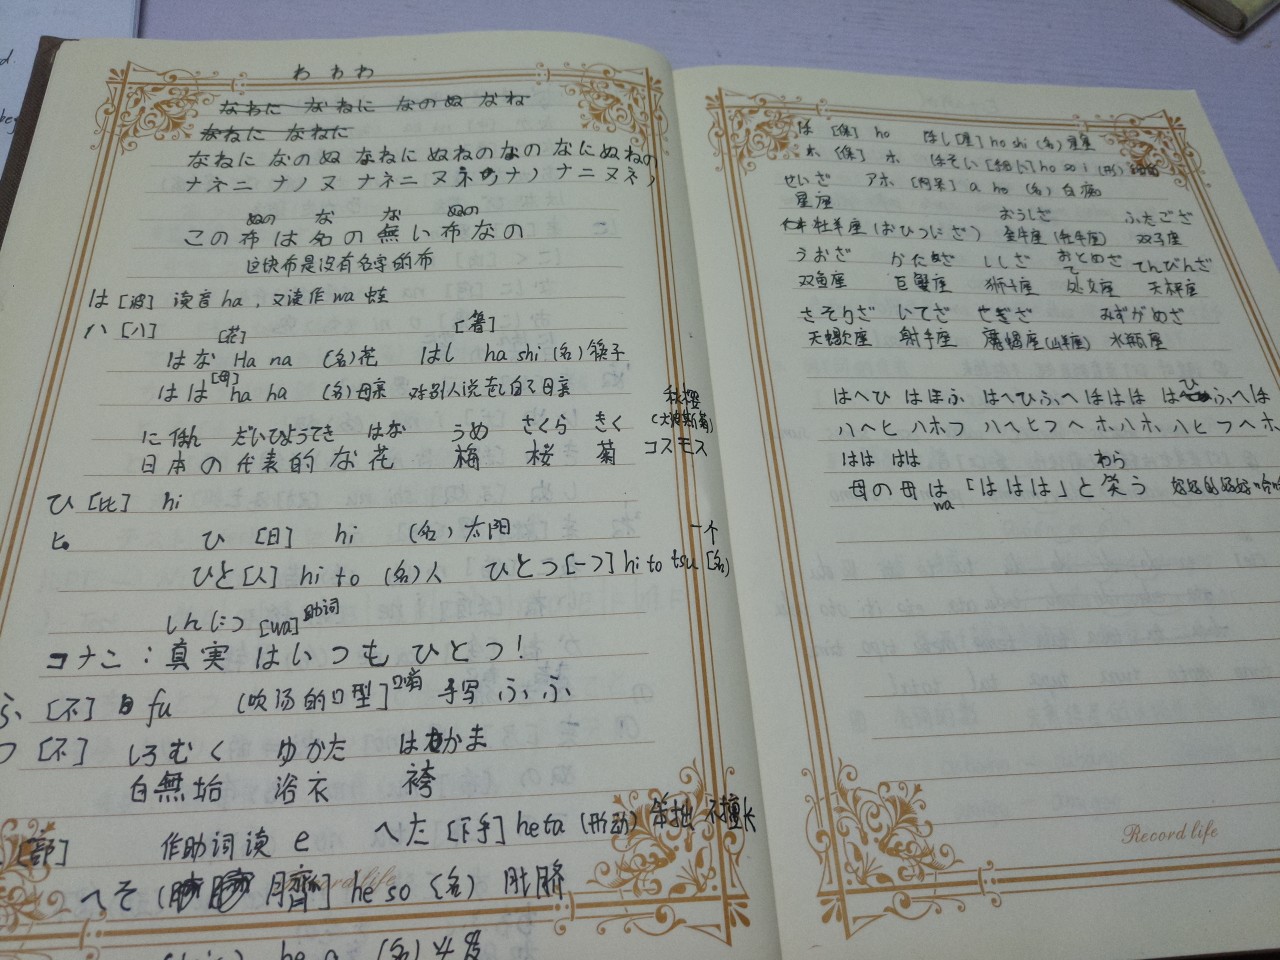 わ わ わ
なねに なねに なのぬ なね
なねに なねに
なねに なのぬ なねに ぬねのなの なにぬねの
ナネニ ナノヌ ナネニ ヌネノナノ ナニヌネノ
ぬの な な ぬの
この布は名の無い布なの
这块布是没有名字的布
は [波] 读音 ha, 又读作 wa 蛙
ハ [八] [花] [箸]
はな Ha na (名)花 はし ha shi (名) 筷子
はは [母] ha ha (名)母亲 对别人说起自己母亲
秋樱
にほん だいひょうてき はな うめ さくら きく (大波斯菊)
日本の代表的な花 梅 桜 菊 コスモス
ひ [比] hi
ヒ ひ [日] hi (名) 太阳 一个
ひと[人] hi to (名)人 ひとつ [一つ] hi to tsu [名]
しんじつ [wa] 助词
コナン:真実 はいつも ひとつ!
ふ [不] fu (吹汤的口型] 手写 ふ ふ
フ [不] しろむく ゆかた はかま
白無垢 浴衣 袴
[部] 作助词读 e へた [下手] heta (形动) 笨拙 不擅长
へそ 臍] he so (名) 肚脐
he a (名)
Record life
ほ [保] ho ほし [星] ho shi (名) 星座
ホ [保] ホ ほそい [細い] ho so i (形)
せいざ アホ [阿呆] a ho (名) 白痴
星座
牡羊座 (おひつじざ) おうしざ ふたござ
金牛座 (牡牛座) 双子座
うおざ かにざ ししざ おとめざ てんびんざ
双鱼座 巨蟹座 狮子座 处女座 天秤座
さそりざ いてざ やぎざ みずがめざ
天蝎座 射手座 魔蝎座(山羊座) 水瓶座
はへひ はほふ はへひふへ ほはほ はひふへほ
ハヘヒ ハホフ ハヘヒフヘ ホハホ ハヒフヘホ
はは はは わら
母の母は「ははは」と笑う
wa
Record life